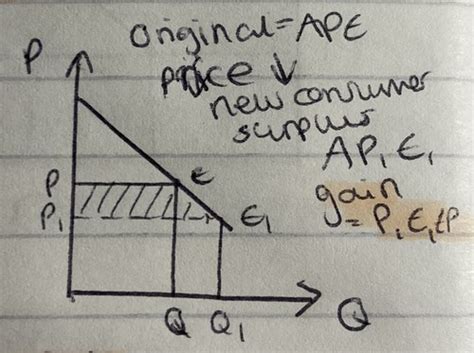 original = APE
P
price ↓
new consumer
surplus
AP₁E₁
gain
= P₁E₁EP
E
P
P₁
E₁
Q Q₁
Q